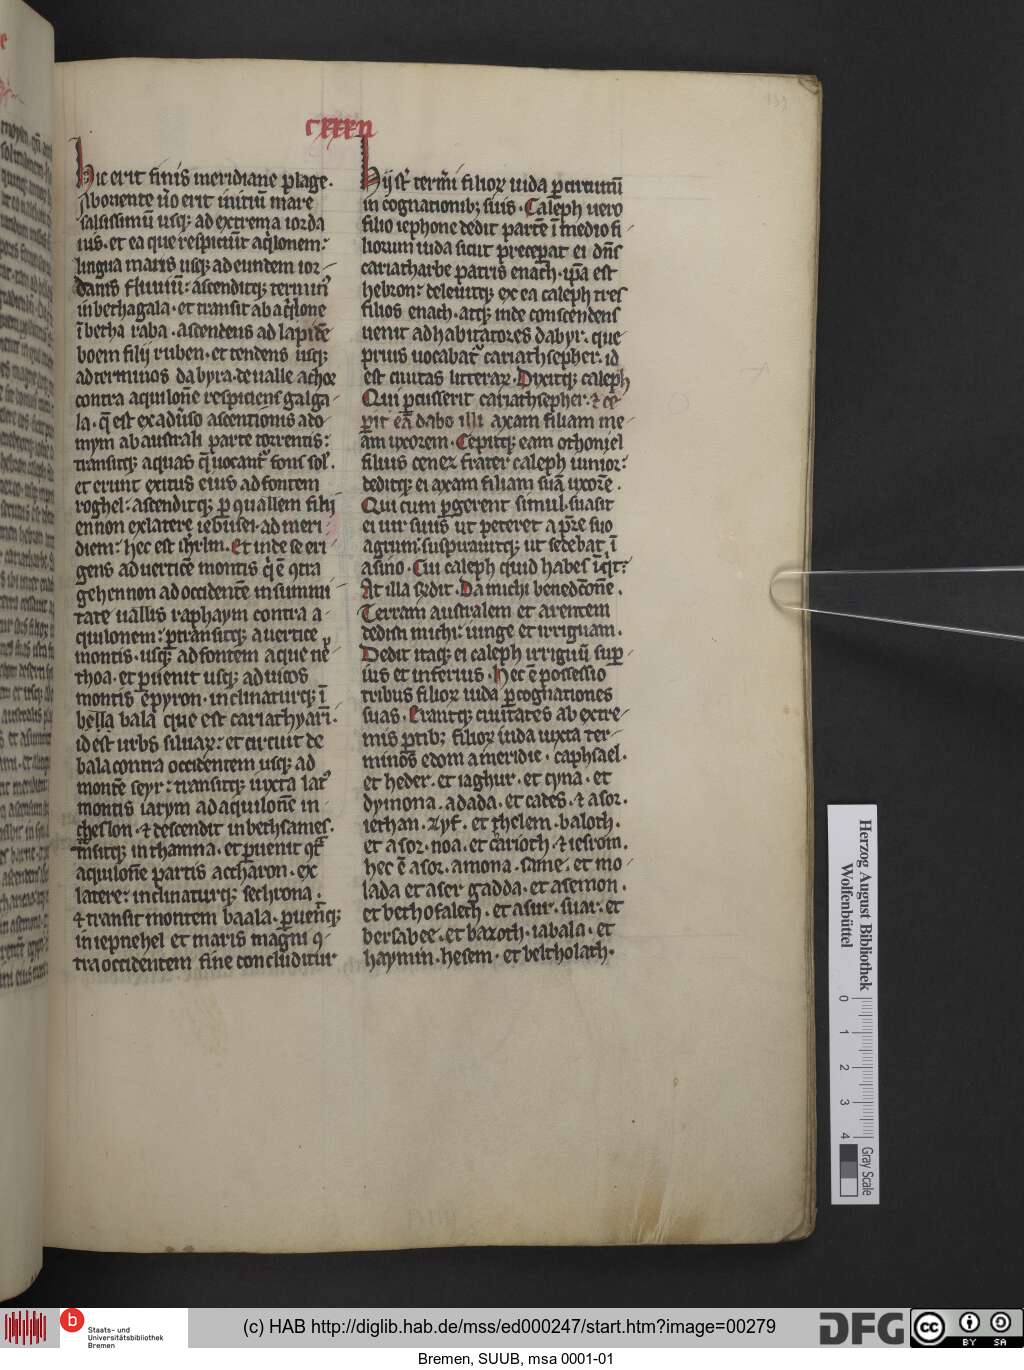 cxxxii
hic erit finis meridiane plage.
Ab oriente ũo erit initiũ mare
salsissimũ usq; ad extrema iorda
nis. et ea que respiciũt aq̃lonem:
lingua maris usq; ad eundem ior
danis fluuiũ: ascenditq; terminꝰ
in bethagala. et transit ab aq̃lone
ĩ betha raba. ascendens ad lapidẽ
boem filij ruben. et tendens usq;
ad terminos dabyra. de ualle achor
contra aquilonẽ respiciens galga
la. q̃ est ex aduͥso ascentionis ado
mym ab australi parte torrentis:
transitq; aquas q̃ uocant᷑ fons sol᷑.
et erunt exitus eius ad fontem
roghel: ascenditq; ꝑ quallem filij
ennon ex latere iebusei. ad meri
diem: hec est ihrlm. Et inde se eri
gens ad uerticẽ montis q̃ ẽ ꝯtra
gehennon ad occidentẽ in summi
tate uallis raphaym contra a
quilonem: ꝑtransitq; a uertice
montis. usq; ad fontem aque ne
thoa. et ꝑuenit usq; ad uicos
montis epyron. inclinaturq; ĩ
bella bala que est cariathyarĩ.
id est urbs siluaꝝ: et circuit de
bala contra occidentem usq; ad
montẽ seyr: transitq; iuxta latꝰ
montis iarym ad aquilonẽ in
cheslon. ⁊ descendit in bethsames.
t̃nsitq; in thamna. et ꝑuenit ꝯt᷑
aquilonẽ partis accharon. ex
latere: inclinaturq; sechrona.
⁊ transit montem baala. ꝑuenĩq;
in iepnehel et maris magni ꝯ
tra occidentem fine concluditur
hij st᷑ term̃i filioꝝ iuda ꝑ circuitũ
in cognationib; suis. Caleph uero
filio iephone dedit partẽ ĩ medio fi
liorum iuda sicut preceperat ei dñs
cariatharbe patris enach. ip̃a est
hebron: deleuitq; ex ea caleph tres
filios enach. atq; inde conscendens
uenit ad habitatores dabyr. que
prius uocabat᷑ cariathsepher. id
est ciuitas litteraꝝ. Dixitq; caleph
Qui ꝑcusserit cariathsepher. ⁊ ce
ꝑit eã dabo illi axam filiam me
am uxorem. Cepitq; eam othoniel
filius cenez frater caleph iunior:
deditq; ei axam filiam suã uxorẽ.
Qui cum ꝑgerent simul. suasit
ei uir suus ut peteret a pr̃e suo
agrum. suspirauitq; ut sedebat ĩ
asino. Cui caleph quid habes inq̃t:
At illa rñdit. Da michi benedc̃onẽ.
Terram australem et arentem
dedisti michi: iunge et irriguam.
Dedit itaq; ei caleph irriguũ suꝑ
ius et inferius. Hec ẽ possessio
tribus filioꝝ iuda ꝑ cognationes
suas. Erantq; ciuitates ab extre
mis ꝑtib; filioꝝ iuda iuxta ter
minos edom a meridie. caphsael.
et heder. et iaghur. et cyna. et
dymona. adada. et cades. ⁊ asor.
iethan. zyf. et thelem. baloth.
et asor. noa. et carioth. ⁊ iesrom.
hec ẽ asor. amona. same. et mo
lada et aser gadda. et asemon.
et bethofaleth. et asur. suar. et
bersabee. et bazoth. iabala. et
haymin. hesem. et beltholath.
Herzog August Bibliothek
Wolfenbüttel
0 1 2 3 4
Gray Scale
b
Staats- und
Universitätsbibliothek
Bremen
(c) HAB http://diglib.hab.de/mss/ed000247/start.htm?image=00279
DFG
cc
BY SA
Bremen, SUUB, msa 0001-01